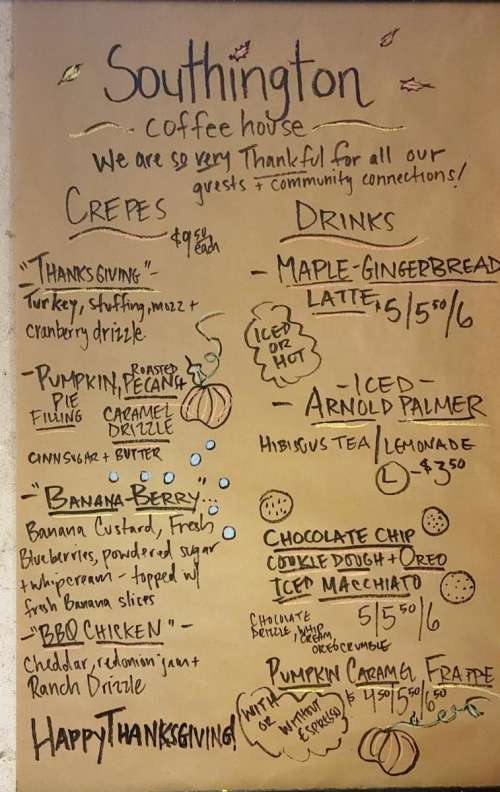 Southington
coffee house
We are so very Thankful for all our
guests + community connections!
CREPES
$9.50 each
-"THANKSGIVING"-
Turkey, stuffing, mozz +
cranberry drizzle
-PUMPKIN PIE FILLING, ROASTED PECANS +
CARAMEL DRIZZLE
CINN SUGAR + BUTTER
-"BANANA-BERRY"-
Banana Custard, Fresh
Blueberries, powdered sugar
+ whipcream - topped w/
fresh Banana slices
-"BBQ CHICKEN"-
Cheddar, red onion jam +
Ranch Drizzle
HAPPY THANKSGIVING!
DRINKS
- MAPLE-GINGERBREAD
LATTE $5/5.50/6
ICED
OR
HOT
-ICED-
- ARNOLD PALMER
HIBISCUS TEA/LEMONADE
L - $3.50
CHOCOLATE CHIP
COOKIE DOUGH + OREO
ICED MACCHIATO
5/5.50/6
CHOCOLATE
DRIZZLE, WHIP
CREAM,
OREO CRUMBLE
PUMPKIN CARAMEL FRAPPE
$4.50/5.50/6.50
WITH
OR WITHOUT
ESPRESSO